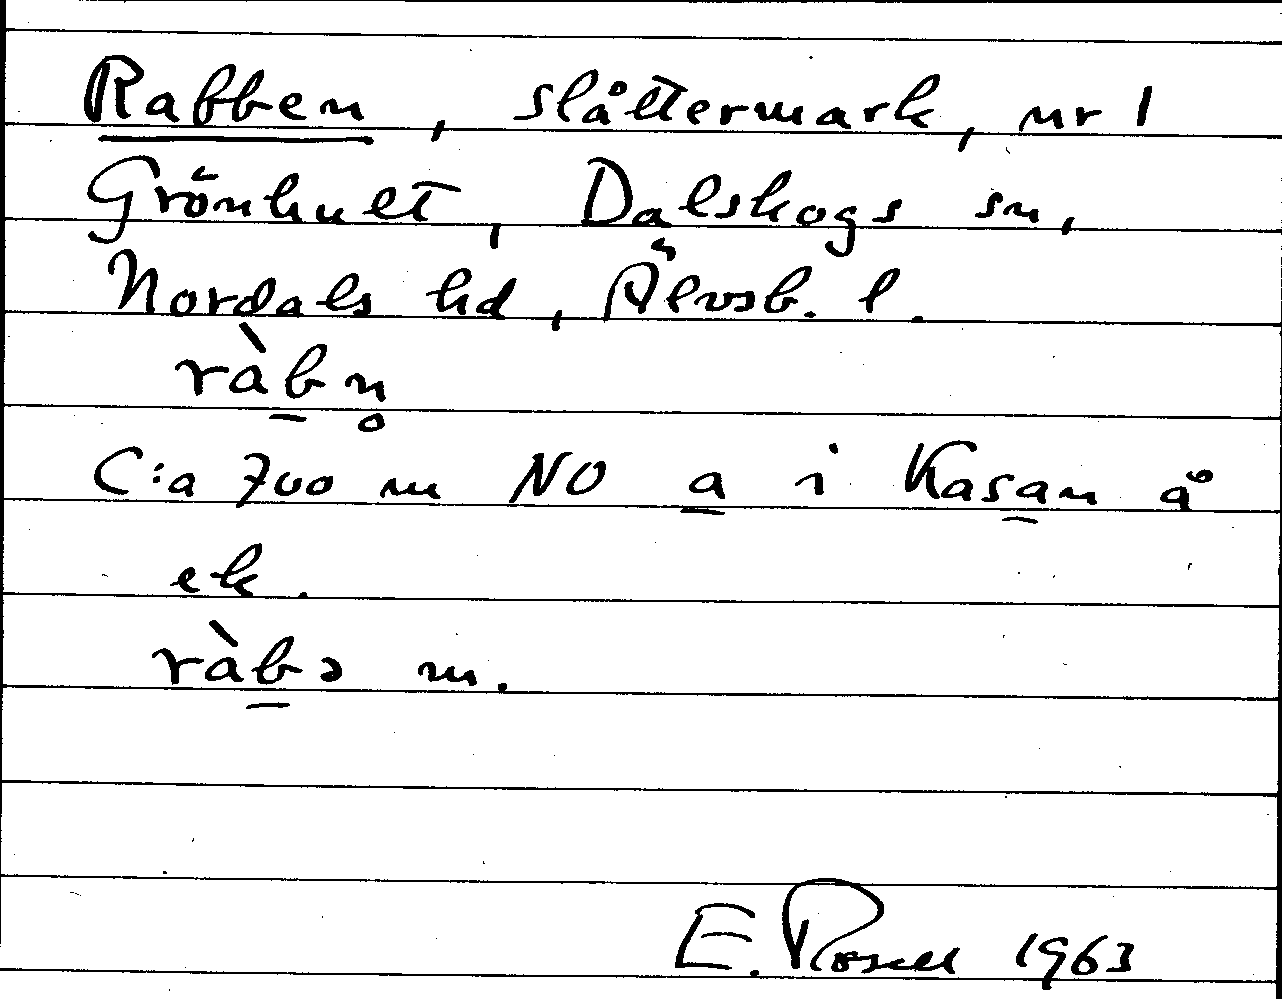 Rabben, slåttermark, nr 1
Grönhult, Dalskogs sn,
Nordals hd, Älvsb. l.
ràb̠n̥
C:a 700 m NO a̲ i Kasa̲n å
ek.
ràb̠ə m.
E. Rosell 1963